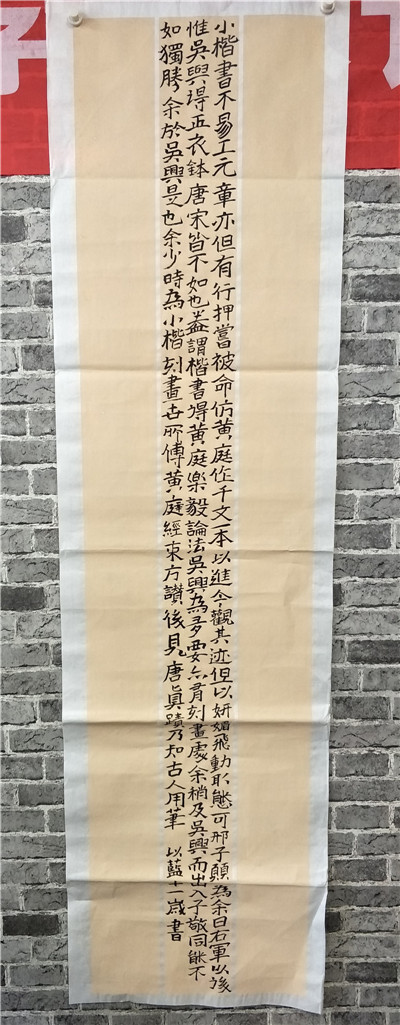 小楷書不易工元章亦但有行押當被命仿黄庭作千文一本以進今觀其迹但以妍媚飛動取態可邢子願為余曰右軍以後
惟吳興得正衣鉢唐宋皆不如也盖謂楷書得黄庭樂毅論法吳興為多要亦有刻畫處余稍及吳興而出入子敬同能不
如獨勝余於吳興是也余少時為小楷刻畫世所傳黄庭經東方讃後見唐眞蹟乃知古人用筆 以藍十一歲書